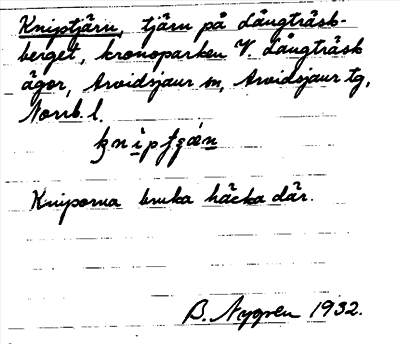 Kniptjärn, tjärn på Långträsk-
berget, kronoparken V. Långträsk
ägor, Arvidsjaur sn, Arvidsjaur tg,
Norrb. l.
Kniporna bruka häcka där.
B. Nygren 1932.